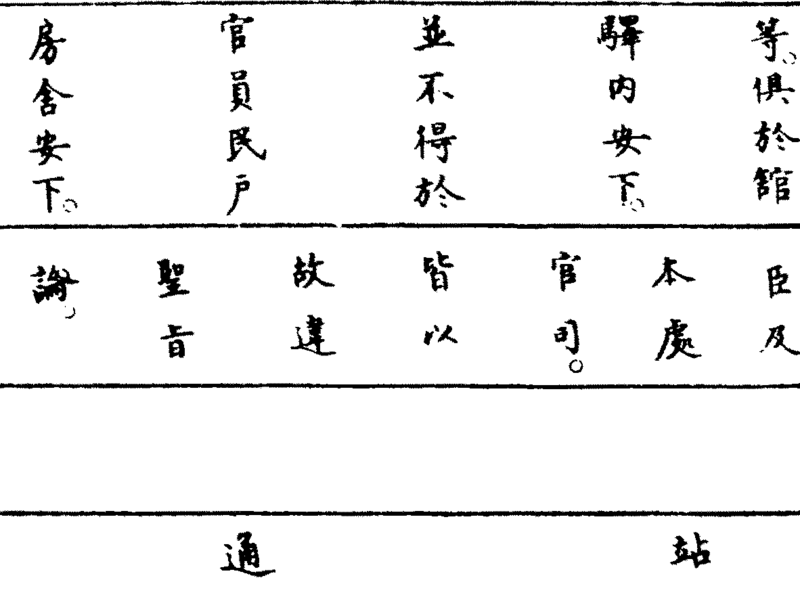 等。俱於舘
驛內安下。
並不得於
官員民戶
房舍安下。
臣及
本處
官司。
皆以
故違
聖旨
論。
站
通